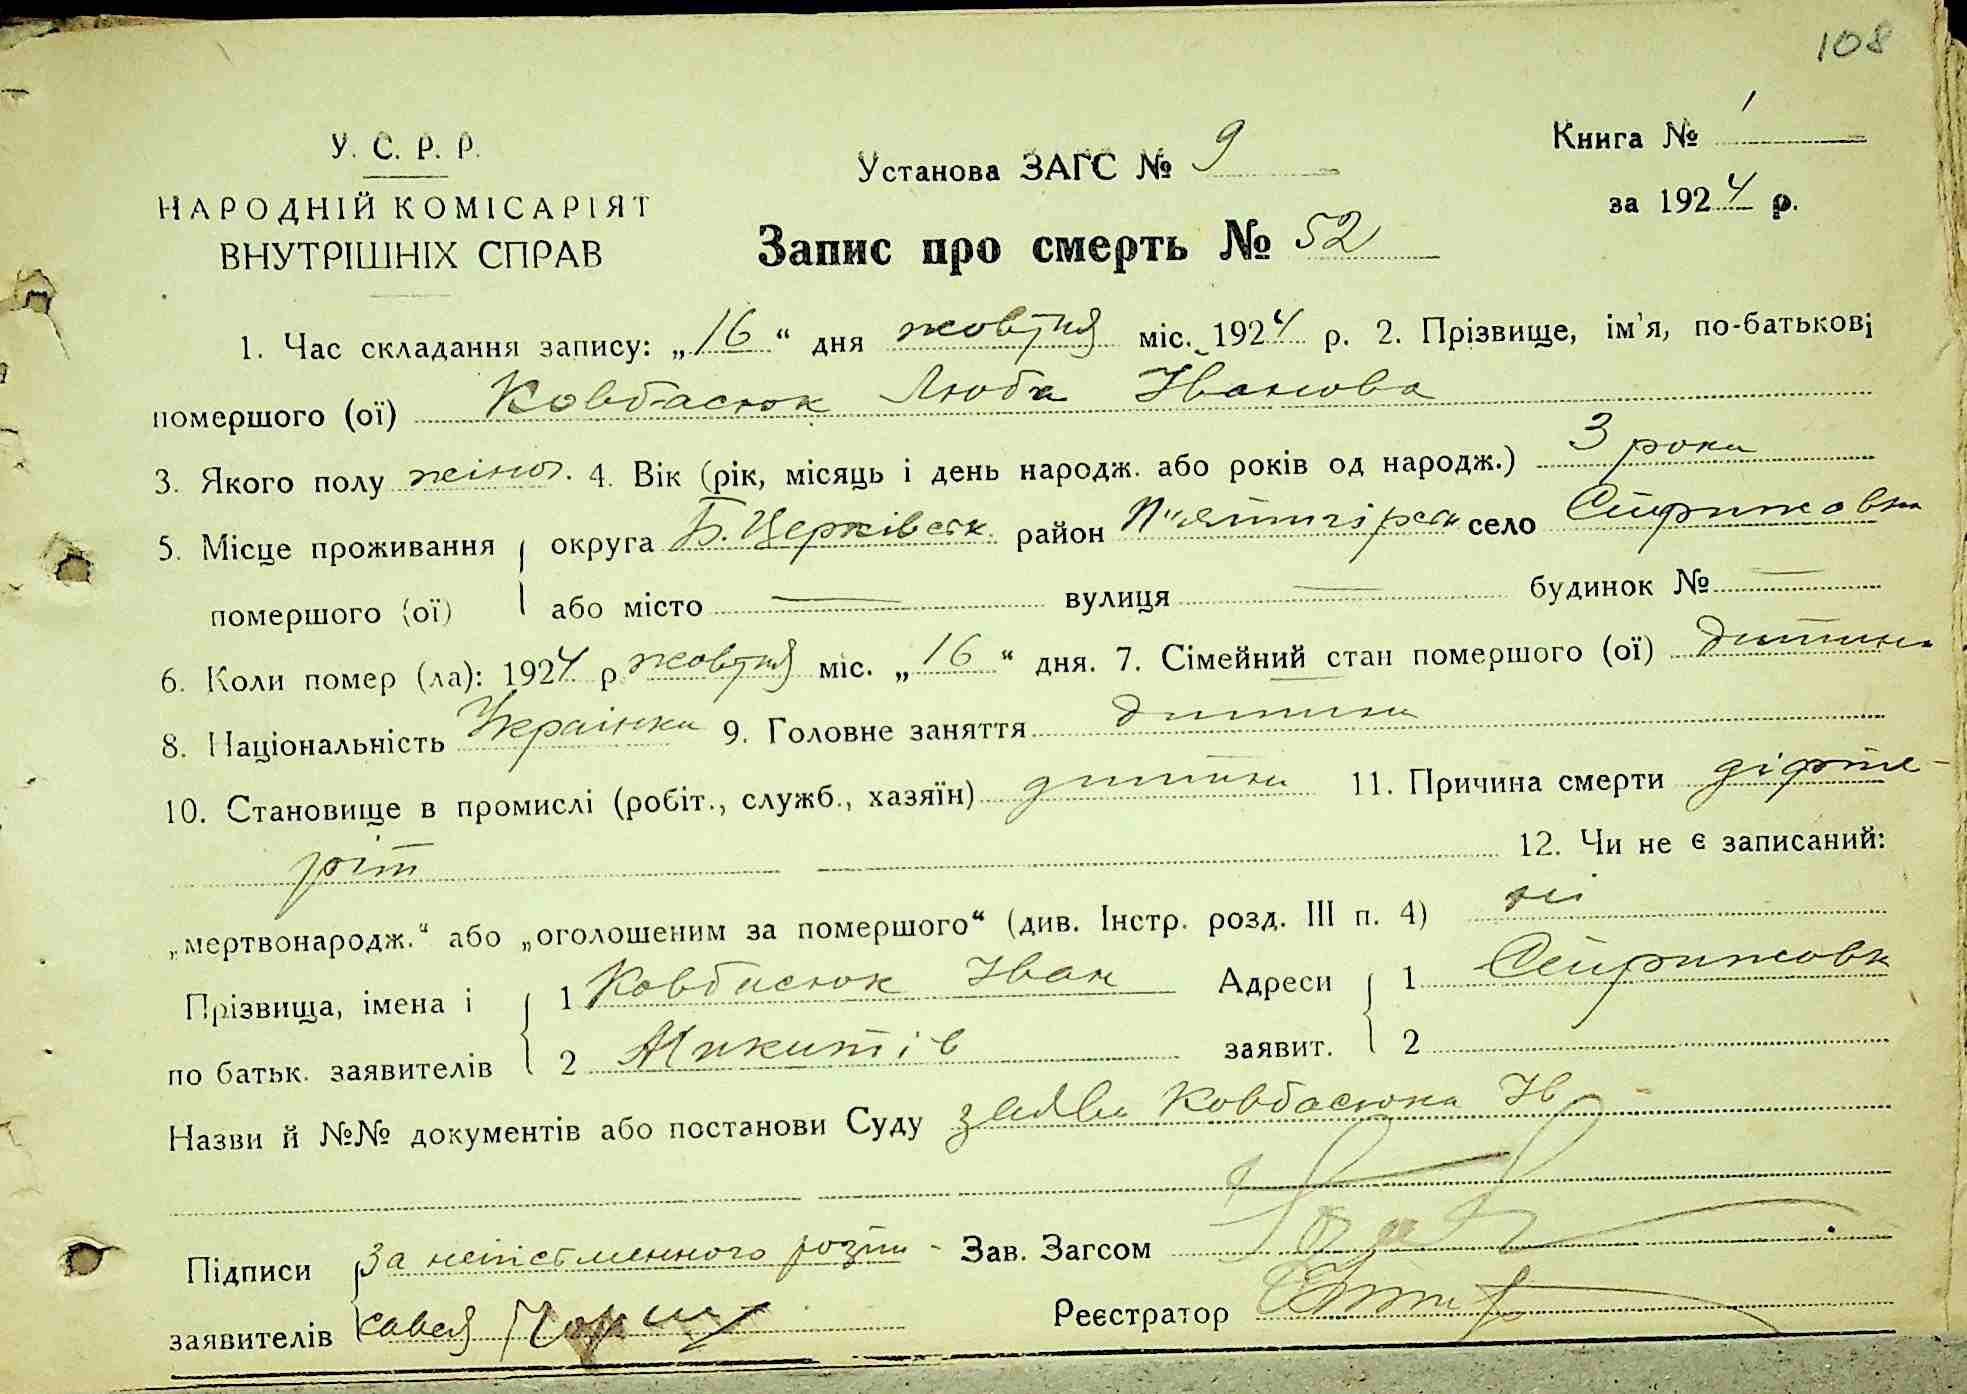 108
У. С. Р. Р.
НАРОДНІЙ КОМІСАРІЯТ
ВНУТРІШНІХ СПРАВ
Установа ЗАГС № 9
Книга № 1
за 1924 р.
Запис про смерть № 52
1. Час складання запису: „16“ дня жовтня міс. 1924 р. 2. Прізвище, ім'я, по-батькові
помершого (ої) Ковбасюк Люба Іванова
3. Якого полу жіноч. 4. Вік (рік, місяць і день народж. або років од народж.) 3 роки
5. Місце проживання округа Б. Церківськ. район П'ятигірськ село
помершого (ої) або місто — вулиця — будинок № —
6. Коли помер (ла): 1924 р. жовтня міс. „16“ дня. 7. Сімейний стан помершого (ої) дитина
8. Національність Українка 9. Головне заняття дитина
10. Становище в промислі (робіт., служб., хазяїн) дитина 11. Причина смерти діфте-
ріт 12. Чи не є записаний:
„мертвонародж.“ або „оголошеним за помершого“ (див. Інстр. розд. III п. 4) ні
Прізвища, імена і 1 Ковбасюк Іван Адреси 1
по батьк. заявителів 2 Микитів заявит. 2
Назви й №№ документів або постанови Суду заява Ковбасюка Ів
Підписи За неписьменного розпи- Зав. Загсом
заявителів сався Реєстратор